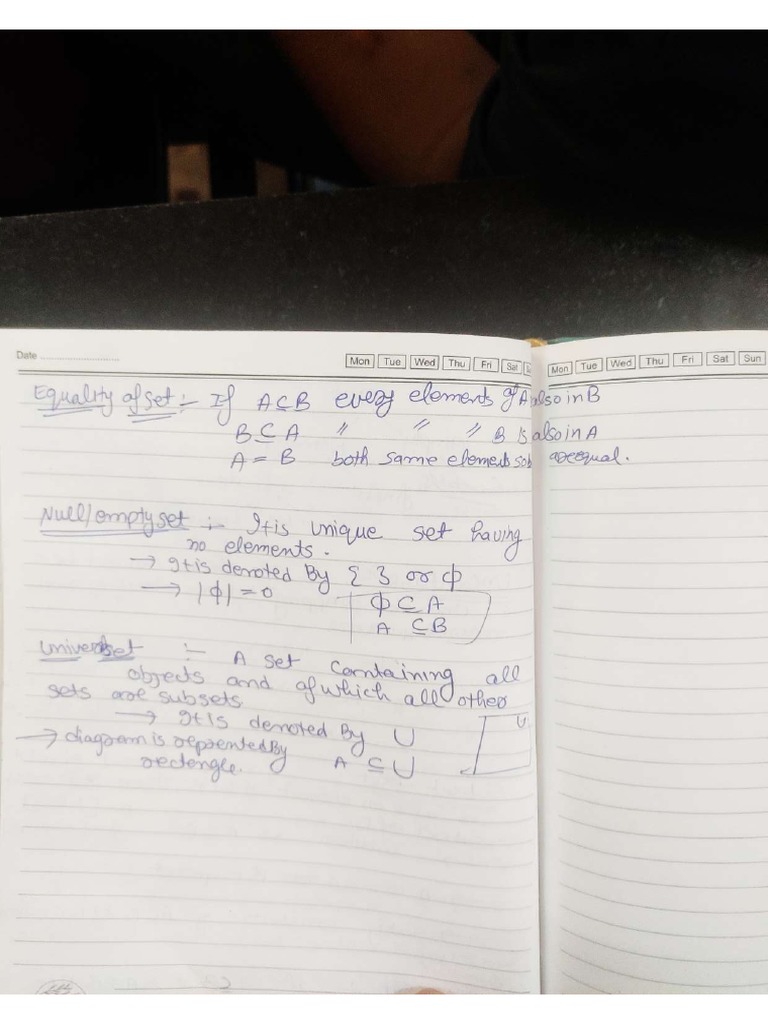 Date
Mon Tue Wed Thu Fri Sat
Mon Tue Wed Thu Fri Sat Sun
Equality of set :- If A⊆B every elements of A also in B
B⊆A " " " B is also in A
A = B both same elements so are equal.
Null/empty set :- It is unique set having
no elements.
→ It is denoted By { } or ϕ
→ |ϕ| = 0
ϕ ⊆ A
A ⊆ B
set :- A set containing all
objects and of which all other
sets are subsets
→ It is denoted By U
U
→ diagram is reprented By
rectengle.
A ⊆ U